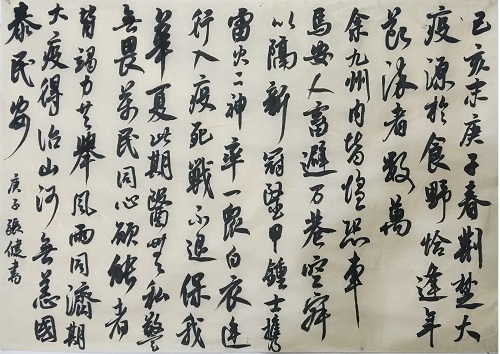 己亥末庚子春荆楚大
疫源於食野恰逢年
染者数萬
余九州内皆惶恐车
馬安人畜避万巷空寂
以隔新冠坚甲鍾士携
雷火二神率一眾白衣逆
行入疫死戰不退保我
華夏此期醫無私警
無畏萬民同心欲能者
皆竭力共舉風雨同濟期
大疫得治山河無恙國
泰民安
庚子張健書